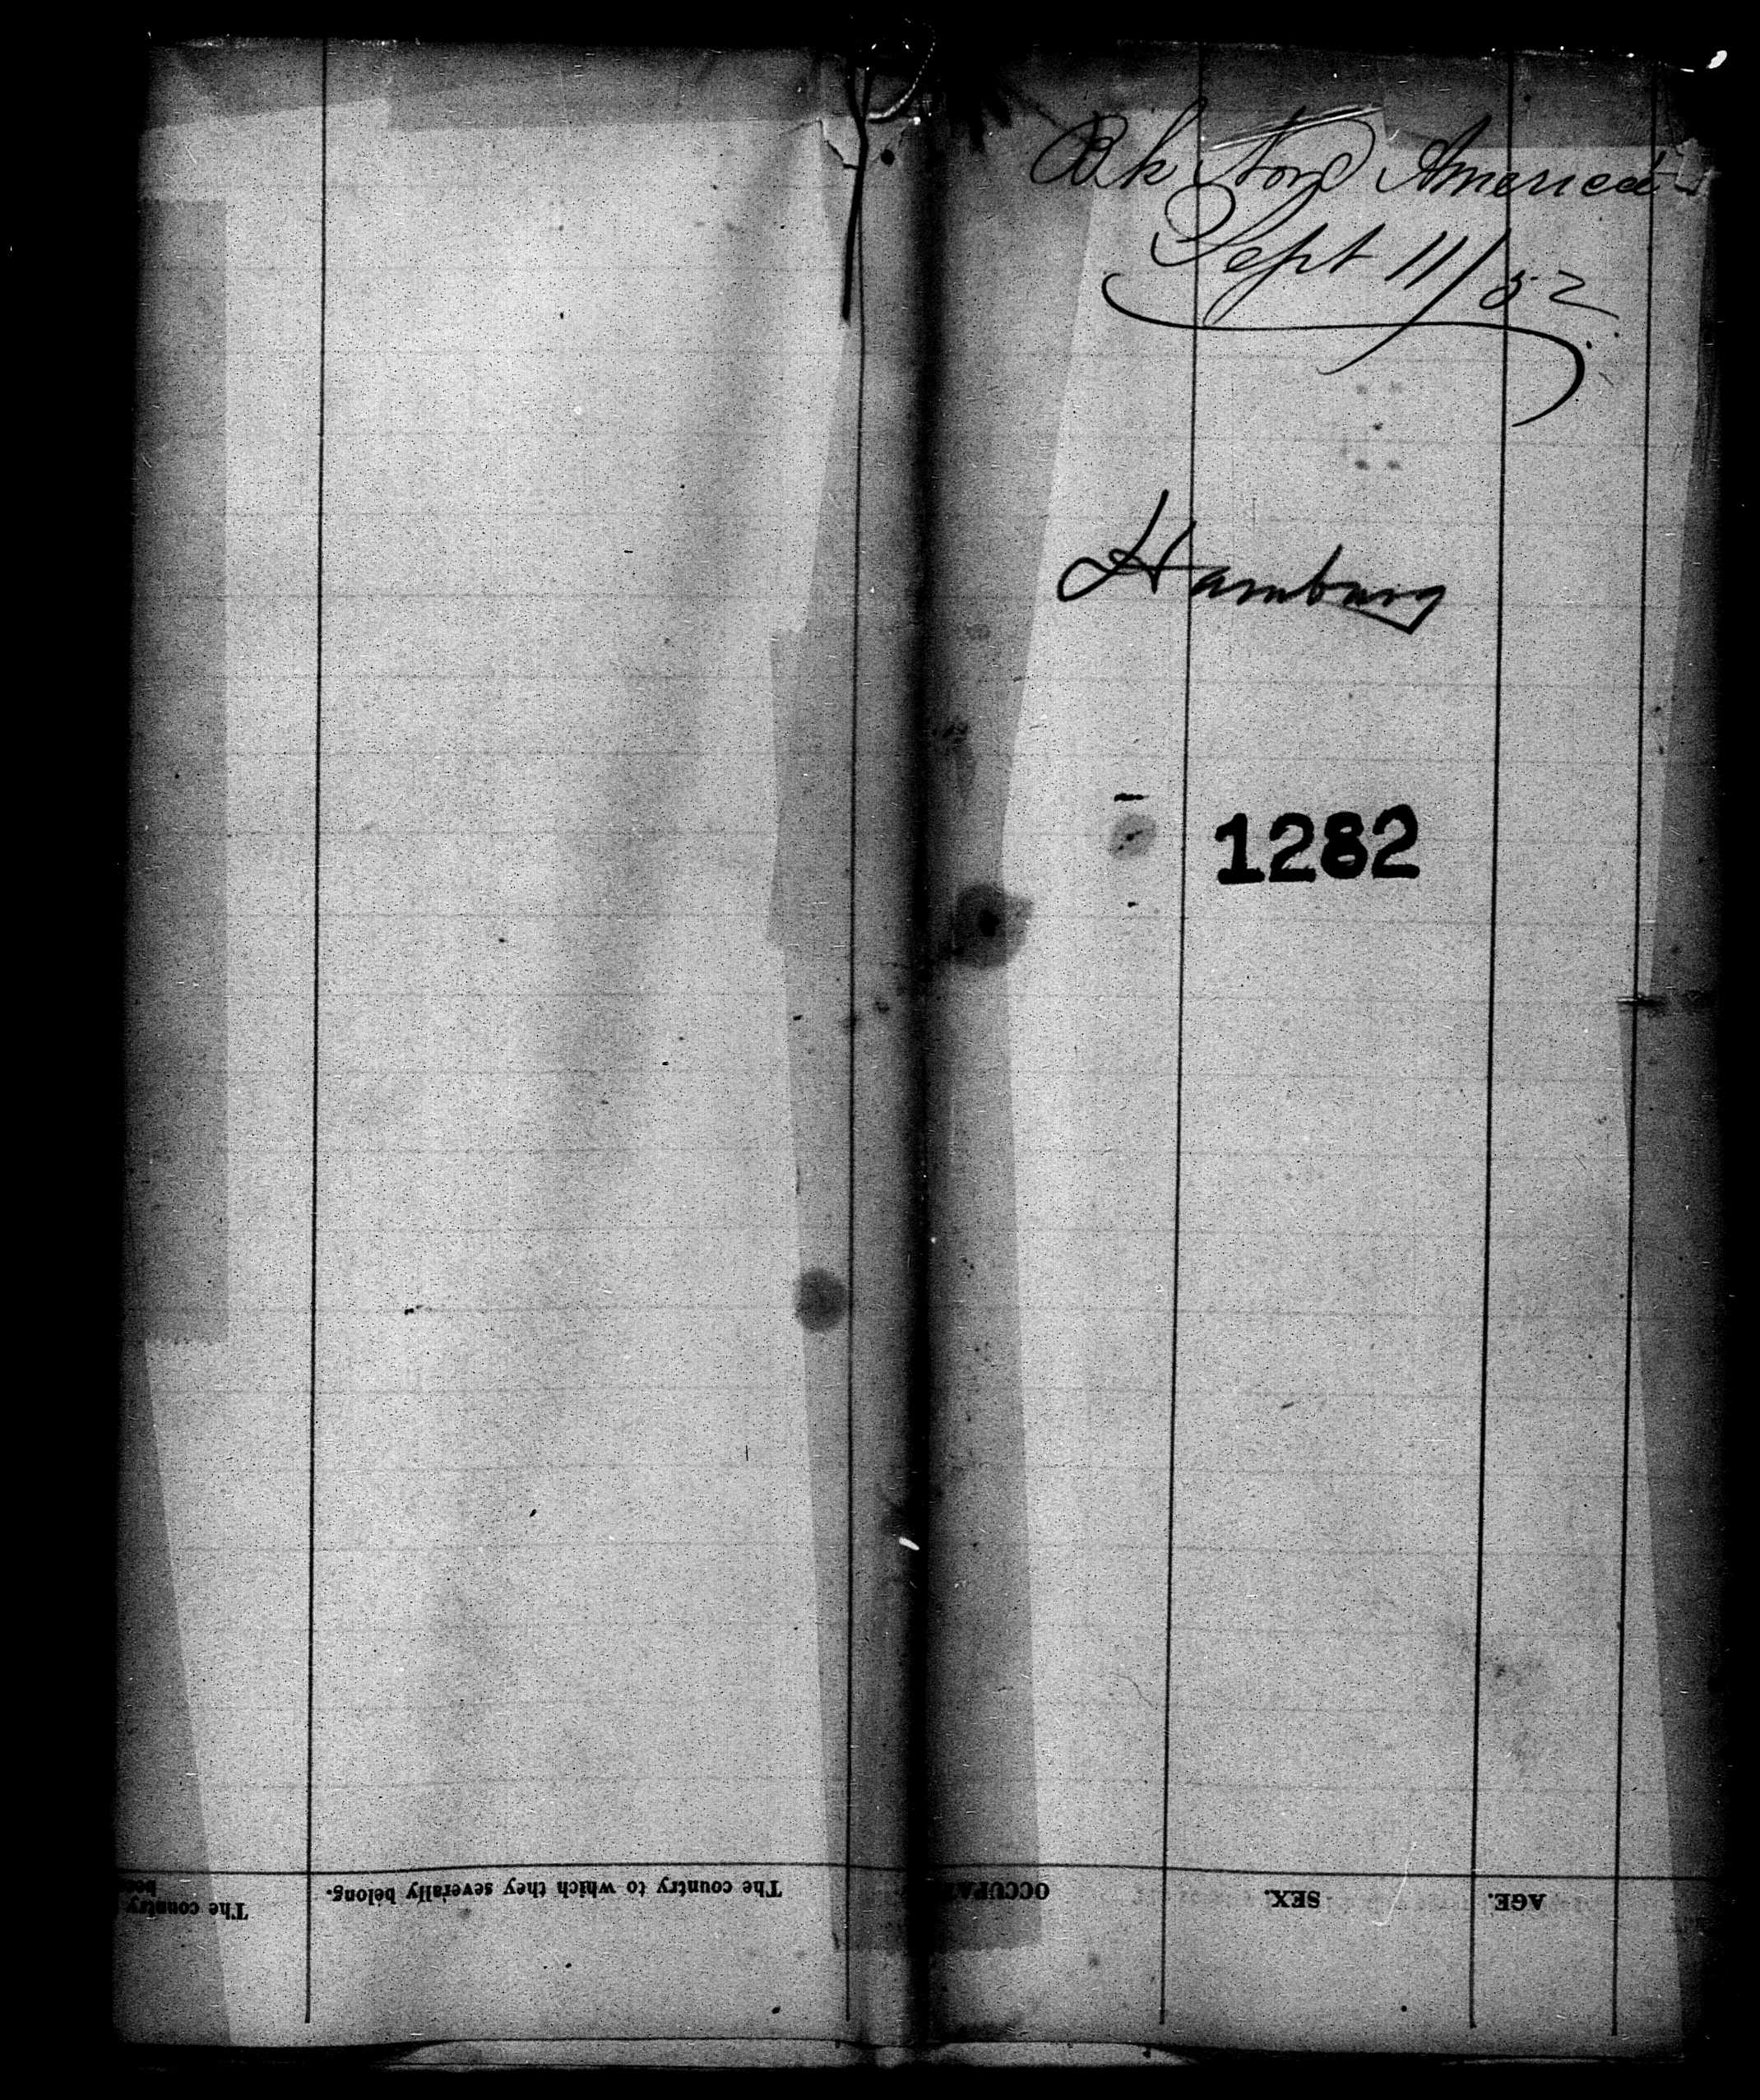 Bk Nord America
Sept 11/52
Hamburg
1282
The country
The country to which they severally belong.
OCCUPA
SEX.
AGE.